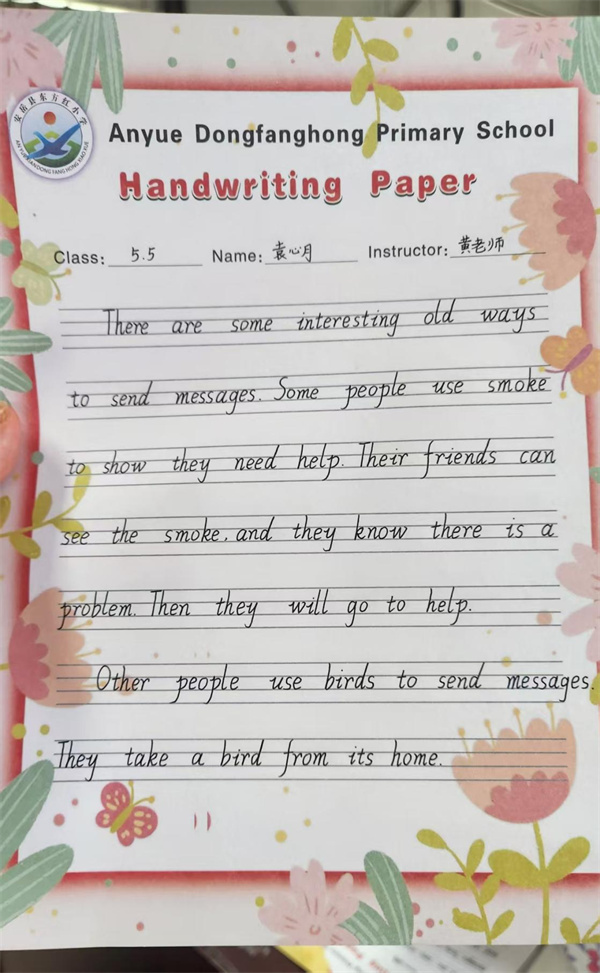 安岳县东方红小学
Anyue Dongfanghong Primary School
Handwriting Paper
Class: 5.5 Name: 袁心月 Instructor: 黄老师
There are some interesting old ways
to send messages. Some people use smoke
to show they need help. Their friends can
see the smoke, and they know there is a
problem. Then they will go to help.
Other people use birds to send messages.
They take a bird from its home.